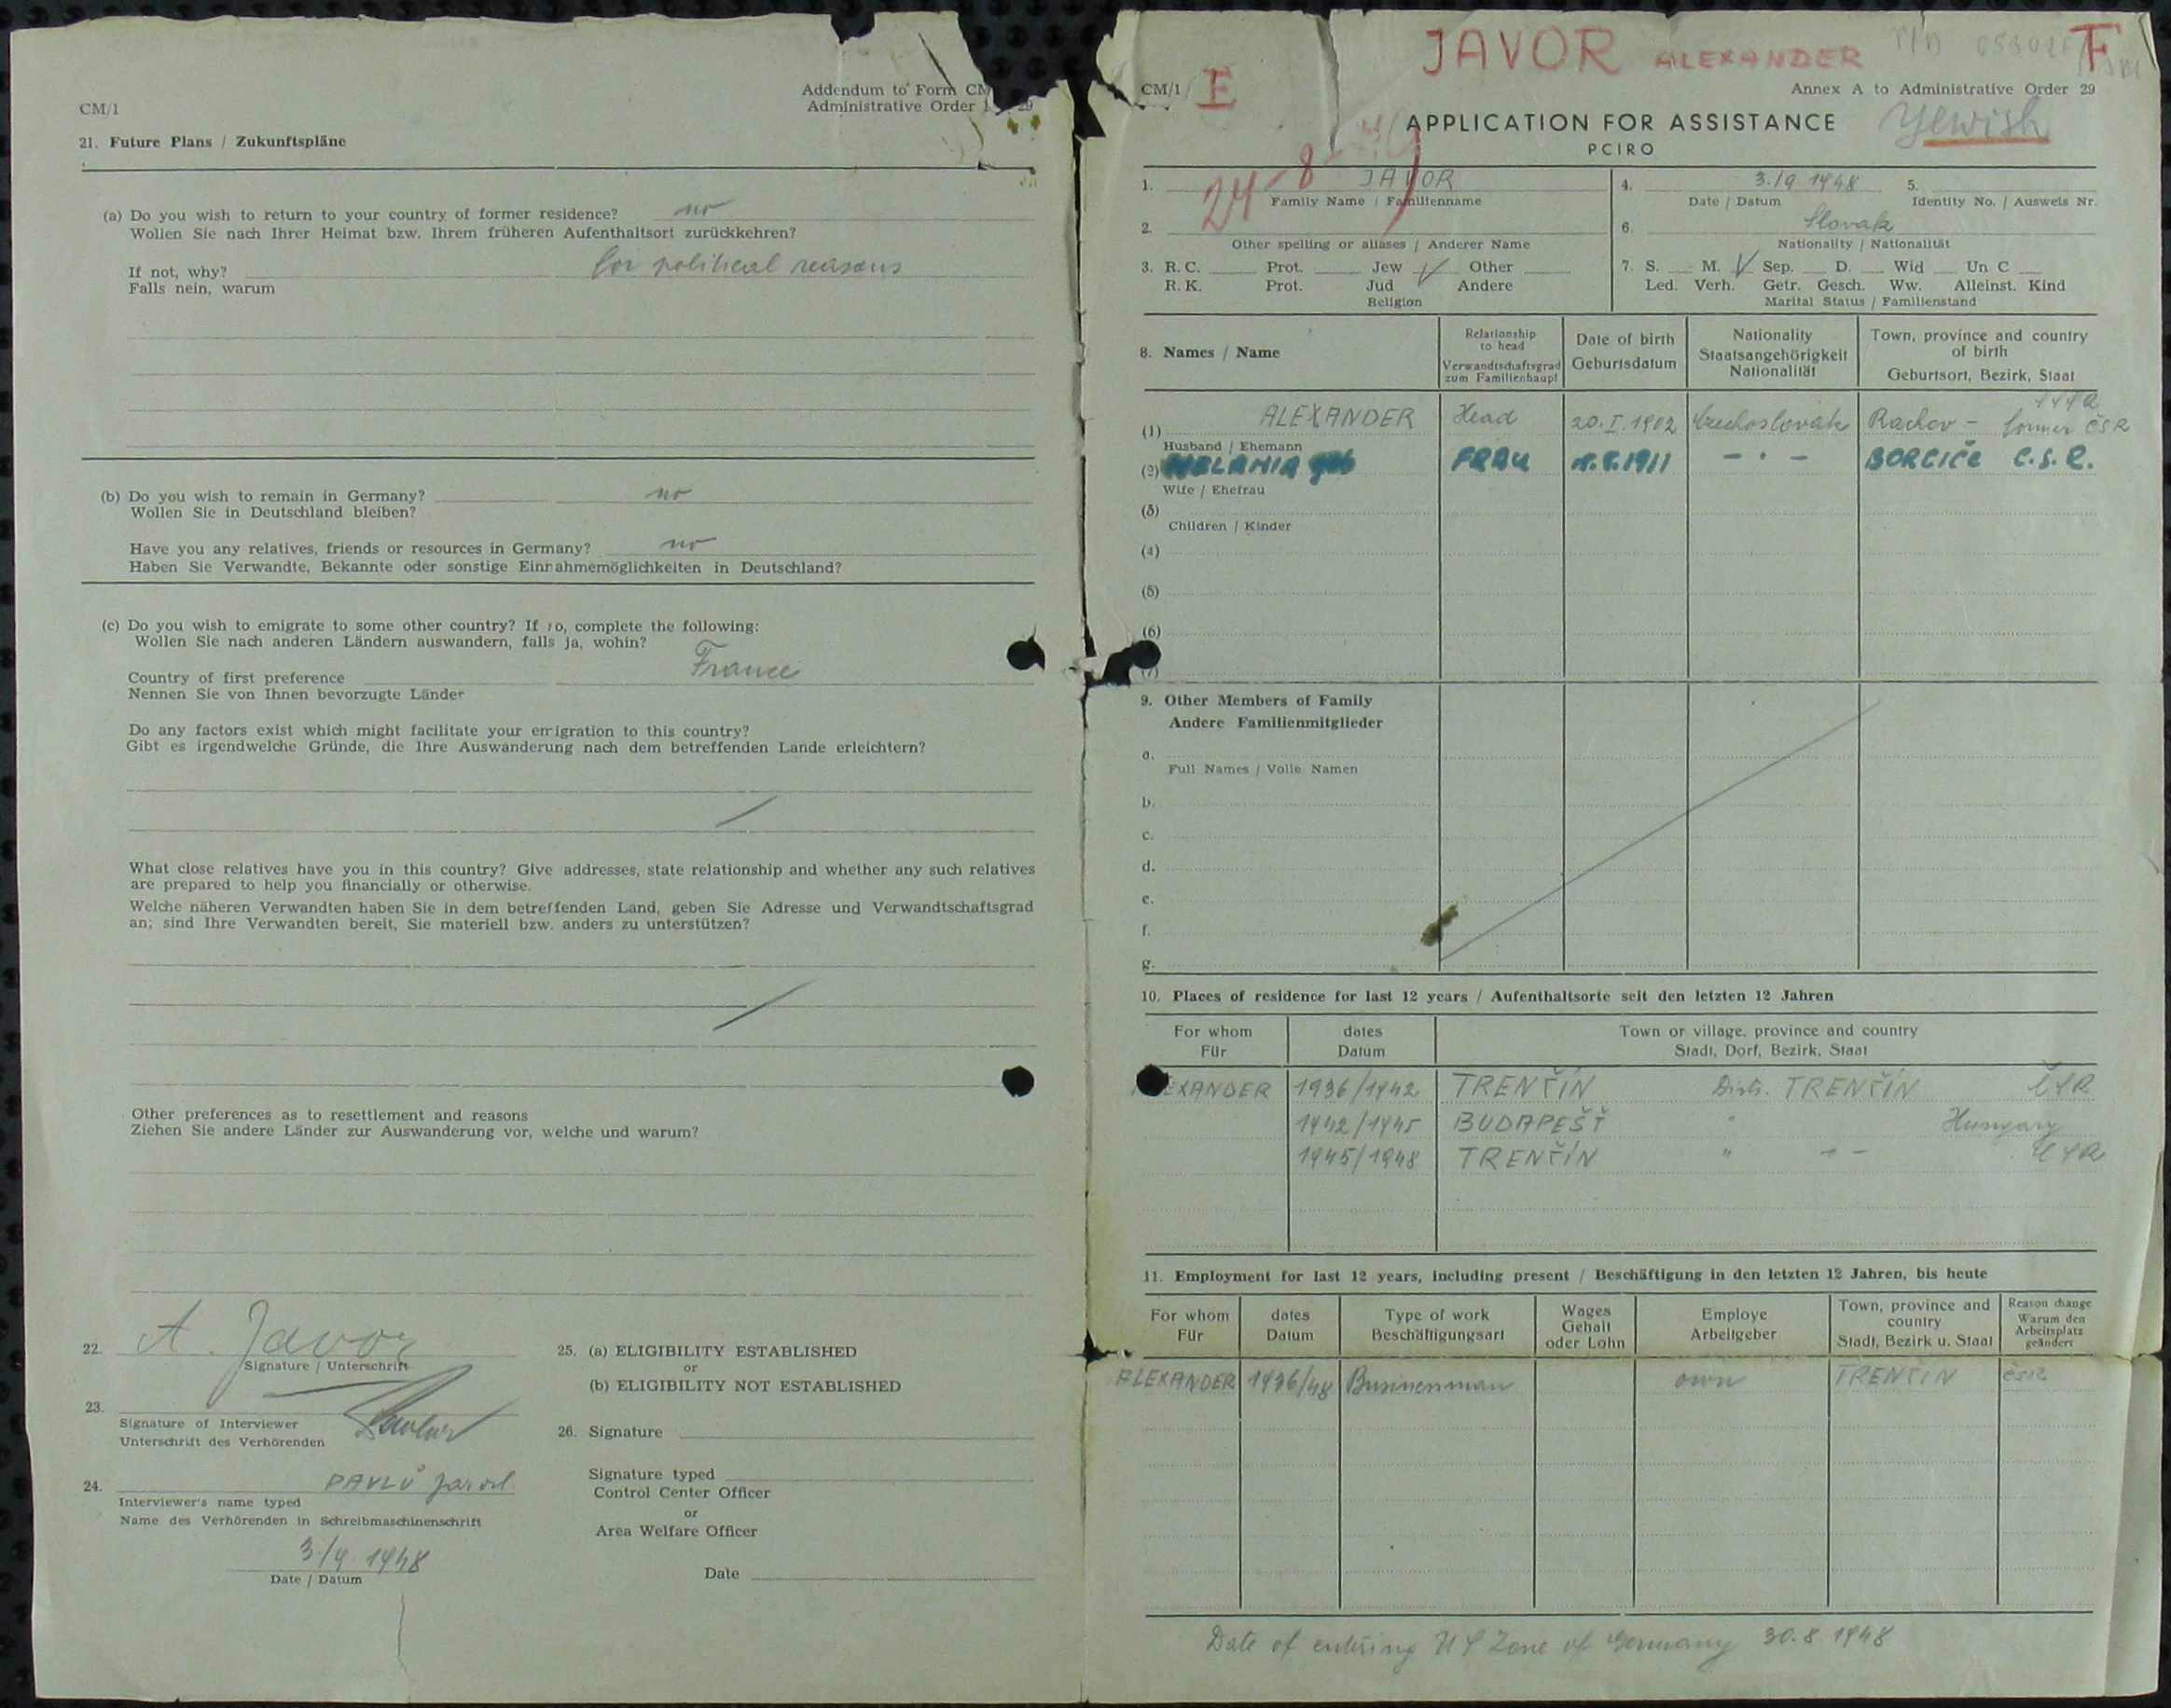 CM/1
Addendum to Form CM
Administrative Order 29
21. Future Plans / Zukunftspläne
(a) Do you wish to return to your country of former residence? no
Wollen Sie nach Ihrer Heimat bzw. Ihrem früheren Aufenthaltsort zurückkehren?
If not, why? for political reasons
Falls nein, warum
(b) Do you wish to remain in Germany? no
Wollen Sie in Deutschland bleiben?
Have you any relatives, friends or resources in Germany? no
Haben Sie Verwandte, Bekannte oder sonstige Einnahmemöglichkeiten in Deutschland?
(c) Do you wish to emigrate to some other country? If so, complete the following:
Wollen Sie nach anderen Ländern auswandern, falls ja, wohin?
Country of first preference France
Nennen Sie von Ihnen bevorzugte Länder
Do any factors exist which might facilitate your emigration to this country?
Gibt es irgendwelche Gründe, die Ihre Auswanderung nach dem betreffenden Lande erleichtern?
What close relatives have you in this country? Give addresses, state relationship and whether any such relatives
are prepared to help you financially or otherwise.
Welche näheren Verwandten haben Sie in dem betreffenden Land, geben Sie Adresse und Verwandtschaftsgrad
an; sind Ihre Verwandten bereit, Sie materiell bzw. anders zu unterstützen?
Other preferences as to resettlement and reasons
Ziehen Sie andere Länder zur Auswanderung vor, welche und warum?
22. A. Javor
Signature / Unterschrift
23.
Signature of Interviewer
Unterschrift des Verhörenden
24. PAVLŮ
Interviewer's name typed
Name des Verhörenden in Schreibmaschinenschrift
3./9 1948
Date / Datum
25. (a) ELIGIBILITY ESTABLISHED
or
(b) ELIGIBILITY NOT ESTABLISHED
26. Signature
Signature typed
Control Center Officer
or
Area Welfare Officer
Date
JAVOR ALEXANDER F
CM/1 E
Annex A to Administrative Order 29
APPLICATION FOR ASSISTANCE Yewish
PCIRO
24-8
1. JAVOR
Family Name / Familienname
4. 3./9 1948 5.
Date / Datum Identity No. / Ausweis Nr.
2.
Other spelling or aliases / Anderer Name
6. Slovak
Nationality / Nationalität
3. R. C. Prot. Jew √ Other
R. K. Prot. Jud Andere
Religion
7. S. M. √ Sep. D. Wid Un C
Led. Verh. Getr. Gesch. Ww. Alleinst. Kind
Marital Status / Familienstand
8. Names / Name
Relationship to head
Verwandtschaftsgrad zum Familienhaupt
Date of birth
Geburtsdatum
Nationality
Staatsangehörigkeit
Nationalität
Town, province and country of birth
Geburtsort, Bezirk, Staat
(1) ALEXANDER Head 20. I. 1902 Czechoslovak Rachov - former ČSR
Husband / Ehemann
(2) MELANIA FRAU 1911 - " - BORČICE C.S.R.
Wife / Ehefrau
(3)
Children / Kinder
(4)
(5)
(6)
(7)
9. Other Members of Family
Andere Familienmitglieder
a.
Full Names / Volle Namen
b.
c.
d.
e.
f.
g.
10. Places of residence for last 12 years / Aufenthaltsorte seit den letzten 12 Jahren
For whom
Für
dates
Datum
Town or village, province and country
Stadt, Dorf, Bezirk, Staat
ALEXANDER 1936/1942 TRENČÍN Distr. TRENČÍN ČSR
1942/1945 BUDAPEŠŤ " Hungary
1945/1948 TRENČÍN " - " - ČSR
11. Employment for last 12 years, including present / Beschäftigung in den letzten 12 Jahren, bis heute
For whom
Für
dates
Datum
Type of work
Beschäftigungsart
Wages
Gehalt
oder Lohn
Employe
Arbeitgeber
Town, province and country
Stadt, Bezirk u. Staat
Reason change
Warum den Arbeitsplatz geändert
ALEXANDER 1936/48 Businessman own TRENČÍN ČSR
Date of entering US Zone of Germany 30.8. 1948